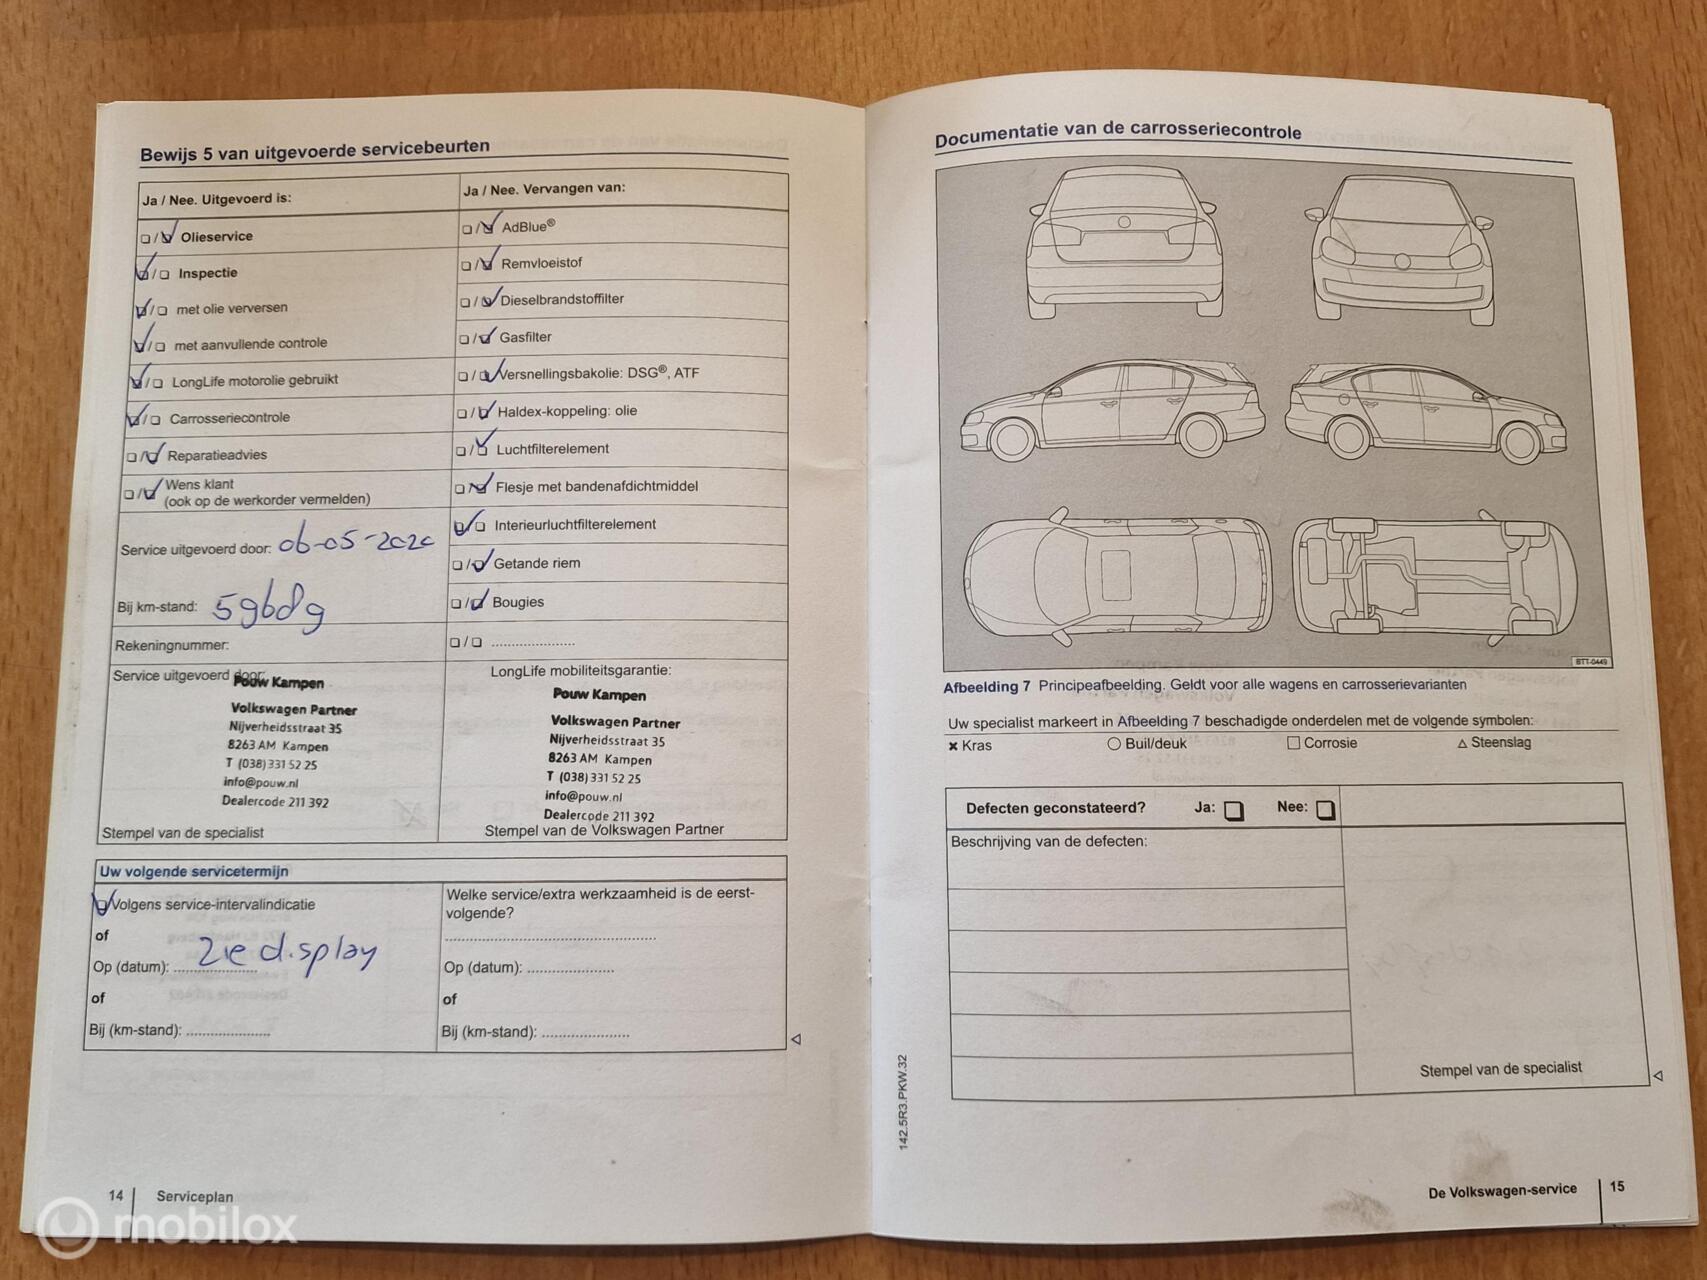 Bewijs 5 van uitgevoerde servicebeurten
Ja / Nee. Uitgevoerd is:
Olieservice
Inspectie
met olie verversen
met aanvullende controle
LongLife motorolie gebruikt
Carrosseriecontrole
Reparatieadvies
Wens klant
(ook op de werkorder vermelden)
Service uitgevoerd door: 06-05-2020
Bij km-stand:
Rekeningnummer:
Service uitgevoerd door:
Pouw Kampen
Volkswagen Partner
Nijverheidsstraat 35
8263 AM Kampen
T (038) 331 52 25
info@pouw.nl
Dealercode 211 392
Stempel van de specialist
Ja / Nee. Vervangen van:
AdBlue®
Remvloeistof
Dieselbrandstoffilter
Gasfilter
Versnellingsbakolie: DSG®, ATF
Haldex-koppeling: olie
Luchtfilterelement
Flesje met bandenafdichtmiddel
Interieurluchtfilterelement
Getande riem
Bougies
LongLife mobiliteitsgarantie:
Pouw Kampen
Volkswagen Partner
Nijverheidsstraat 35
8263 AM Kampen
T (038) 331 52 25
info@pouw.nl
Dealercode 211 392
Stempel van de Volkswagen Partner
Uw volgende servicetermijn
Volgens service-intervalindicatie
of
Op (datum): zie display
of
Bij (km-stand):
Welke service/extra werkzaamheid is de eerst-
volgende?
Op (datum):
of
Bij (km-stand):
14 Serviceplan
Documentatie van de carrosseriecontrole
BTT-0449
Afbeelding 7 Principeafbeelding. Geldt voor alle wagens en carrosserievarianten
Uw specialist markeert in Afbeelding 7 beschadigde onderdelen met de volgende symbolen:
Kras Buil/deuk Corrosie Steenslag
Defecten geconstateerd? Ja: Nee:
Beschrijving van de defecten:
Stempel van de specialist
142.5R3.PKW.32
De Volkswagen-service 15
mobilox